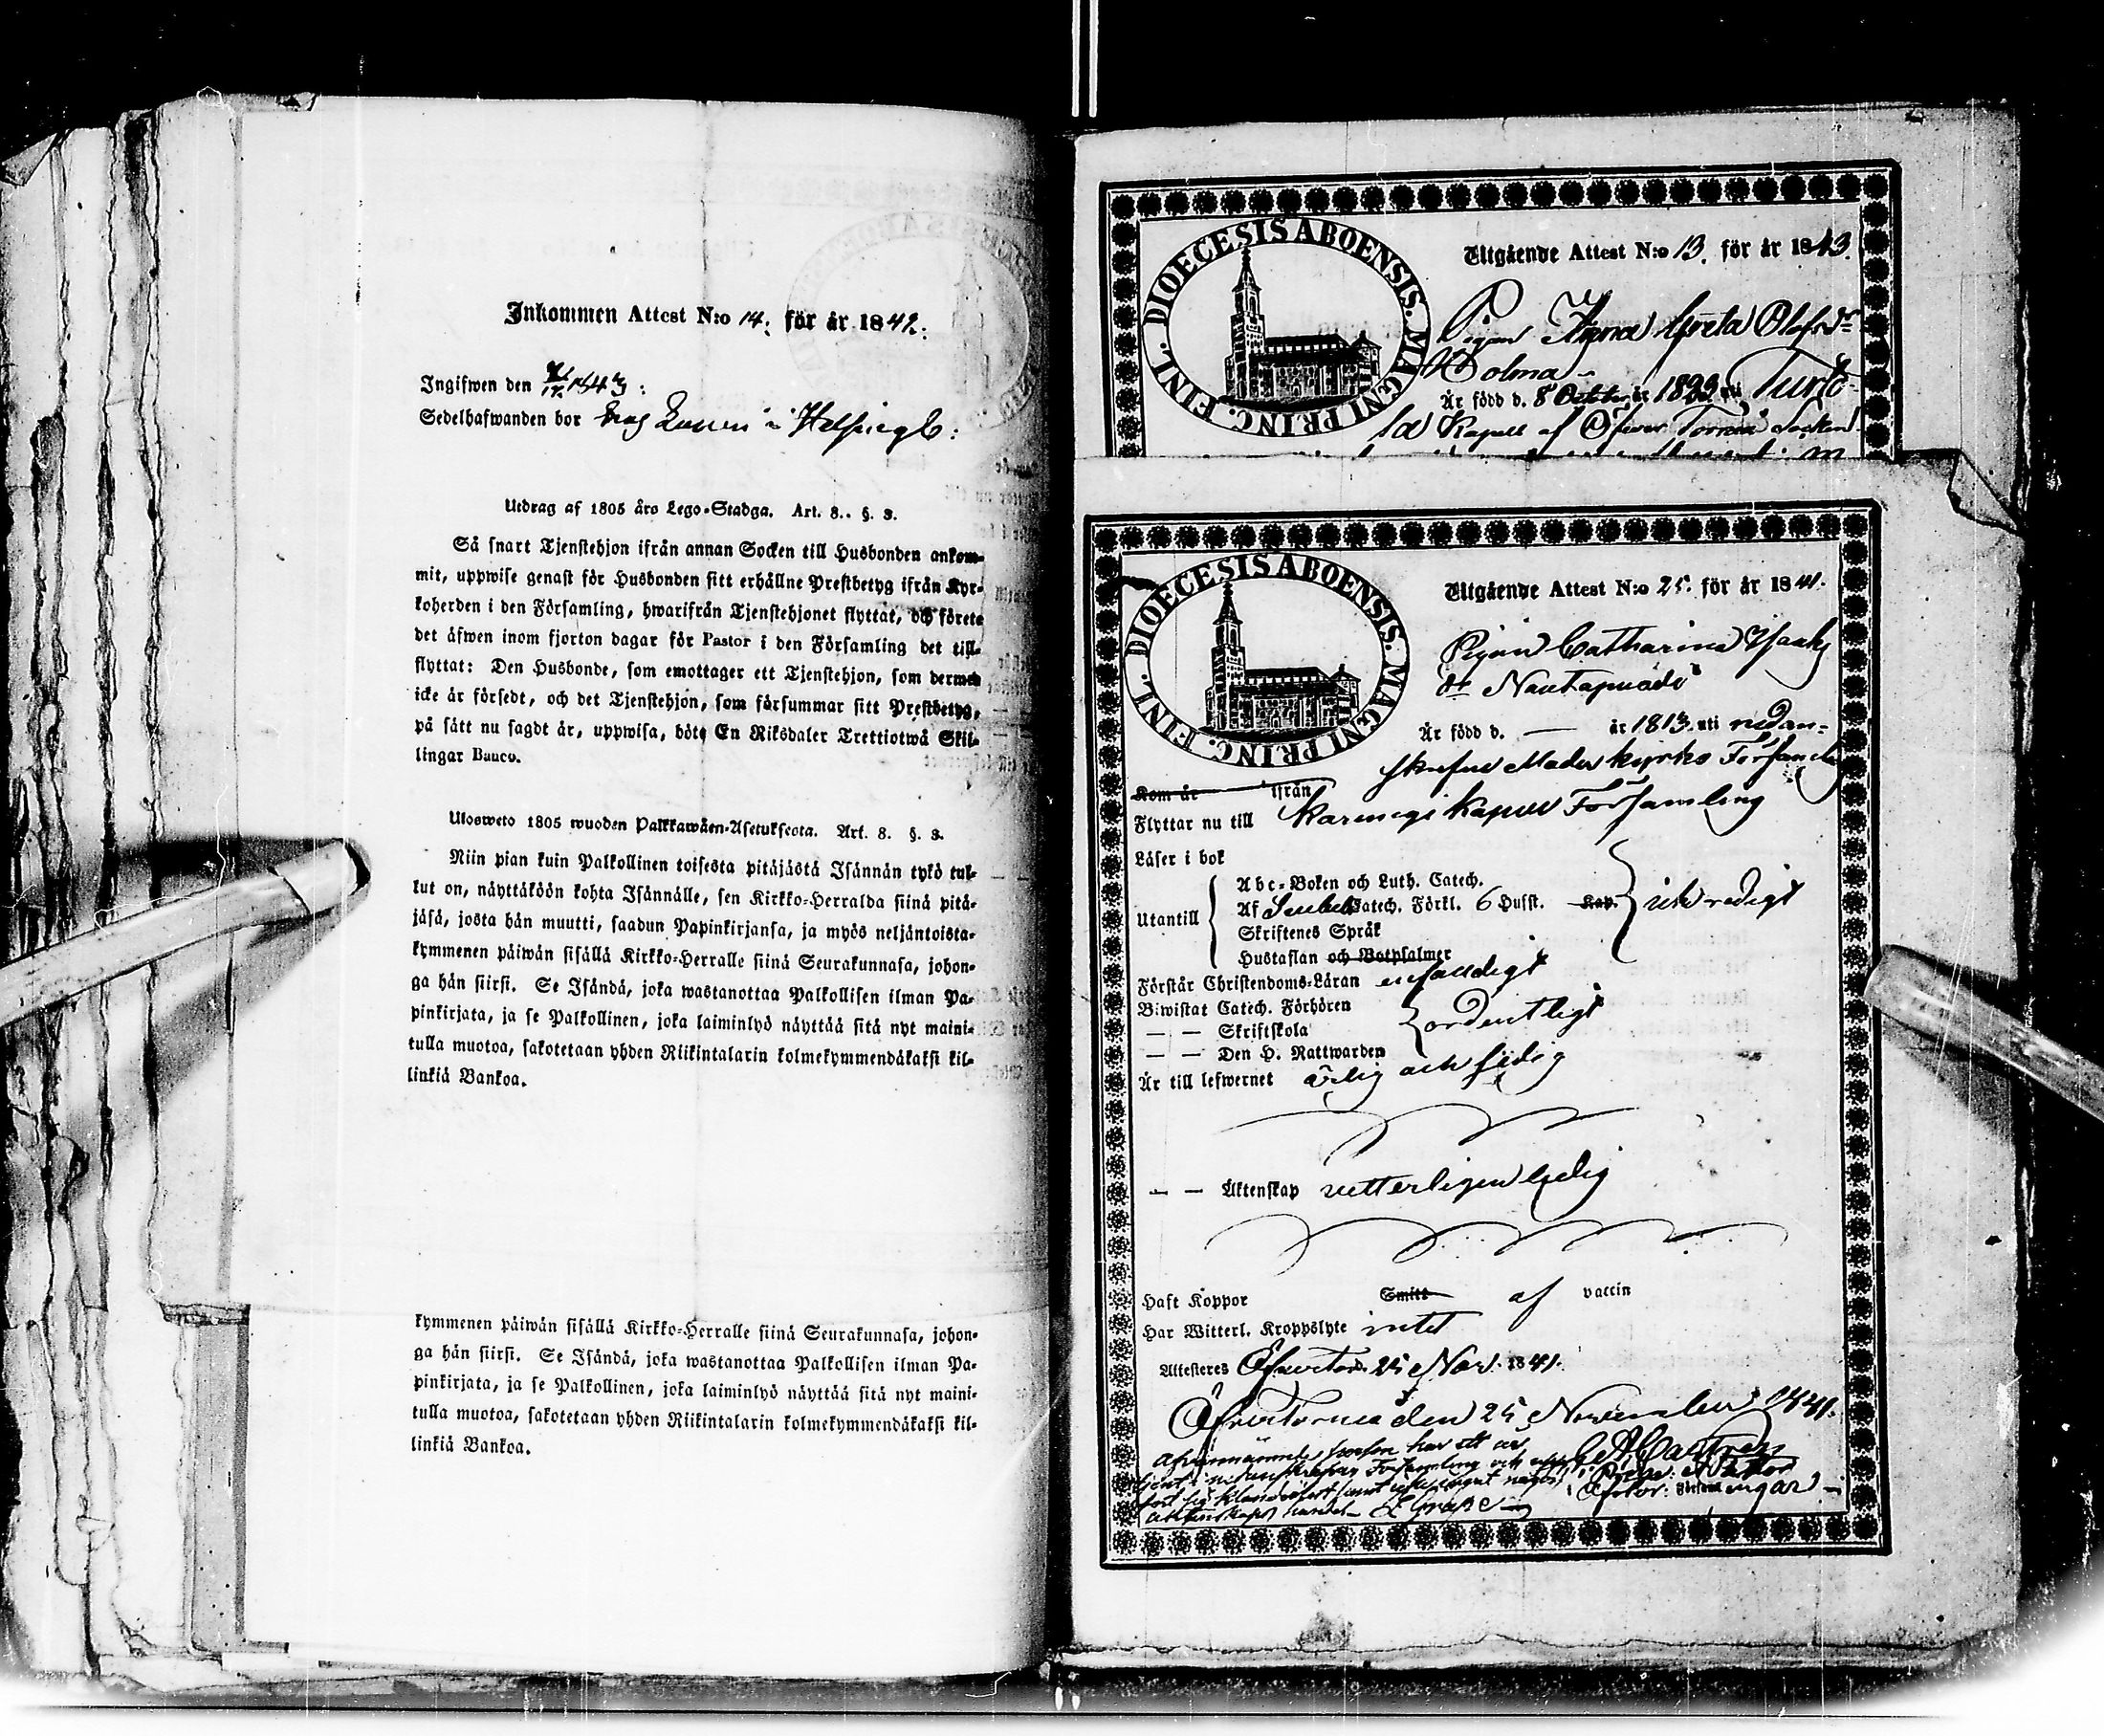 Inkommen Attest N:o 14. för år 1842.
Ingifwen den 1843:
Sedelhafwanden bor hos i
Utdrag af 1805 års Lego-Stadga. Art. 8.. §. 3.
Så snart Tjenstehjon ifrån annan Socken till Husbonden ankom-
mit, uppwise genast för Husbonden sitt erhållne Prestbetyg ifrån Kyr-
koherden i den Församling, hwarifrån Tjenstehjonet flyttat, och förete
det äfwen inom fjorton dagar för Pastor i den Församling det till-
flyttat: Den Husbonde, som emottager ett Tjenstehjon, som dermed
icke är försedt, och det Tjenstehjon, som försummar sitt Prestbetyg,
på sätt nu sagdt är, uppwisa, böte En Riksdaler Trettiotwå Skil-
lingar Banco.
Ulosweto 1805 wuoden Palkkawäen-Asetuksesta. Art. 8. §. 3.
Niin pian kuin Palkollinen toisesta pitäjästä Isännän tykö tul-
lut on, näyttäköön kohta Isännälle, sen Kirkko-Herralda siinä pitä-
jäsä, josta hän muutti, saadun Papinkirjansa, ja myös neljäntoista-
kymmenen päiwän sisällä Kirkko-Herralle siinä Seurakunnasa, johon-
ga hän siirsi. Se Isändä, joka wastanottaa Palkollisen ilman Pa-
pinkirjata, ja se Palkollinen, joka laiminlyö näyttää sitä nyt maini-
tulla muotoa, sakotetaan yhden Riikintalarin kolmekymmendäkaksi kil-
linkiä Bankoa.
kymmenen päiwän sisällä Kirkko-Herralle siinä Seurakunnasa, johon-
ga hän siirsi. Se Isändä, joka wastanottaa Palkollisen ilman Pa-
pinkirjata, ja se Palkollinen, joka laiminlyö näyttää sitä nyt maini-
tulla muotoa, sakotetaan yhden Riikintalarin kolmekymmendäkaksi kil-
linkiä Bankoa.
DIOECESIS ABOENSIS. MAGNI PRINC. FINL.
Utgående Attest N:o 13. för år 1843.
Pigan Anna Greta Olofsdr
Kolma
Är född d. 8 October år 1823 uti Turto-
la Kapell af Öfver Torneå Socken
DIOECESIS ABOENSIS. MAGNI PRINC. FINL.
Utgående Attest N:o 25. för år 1841.
Pigan Catharina Isaks
dr Nautapuodi
Är född d. — år 1813. uti nedan-
skrefne Moderkyrko Församling
Kom år ifrån
Flyttar nu till Karungi Kapell Församling
Läser i bok
Utantill
Abc-Boken och Luth. Catech.
Af Catech. Förkl. 6 Hufst. Kap.
Skriftenes Språk
Hustaflan och Botpsalmer
redigt
Förstår Christendoms-Läran
Biwistat Catech. Förhören
— — Skriftskola
— — Den H. Nattwarden
ordentligt
Är till lefwernet ärlig och sedig
— — Äktenskap vetterligen ledig
Haft Koppor Smitt af vaccin
Har Witterl. Kroppslyte intet
Attesteres Öfvertor. 25 Nov. 1841.
Öfvertorneå den 25 November 1841.
Castren